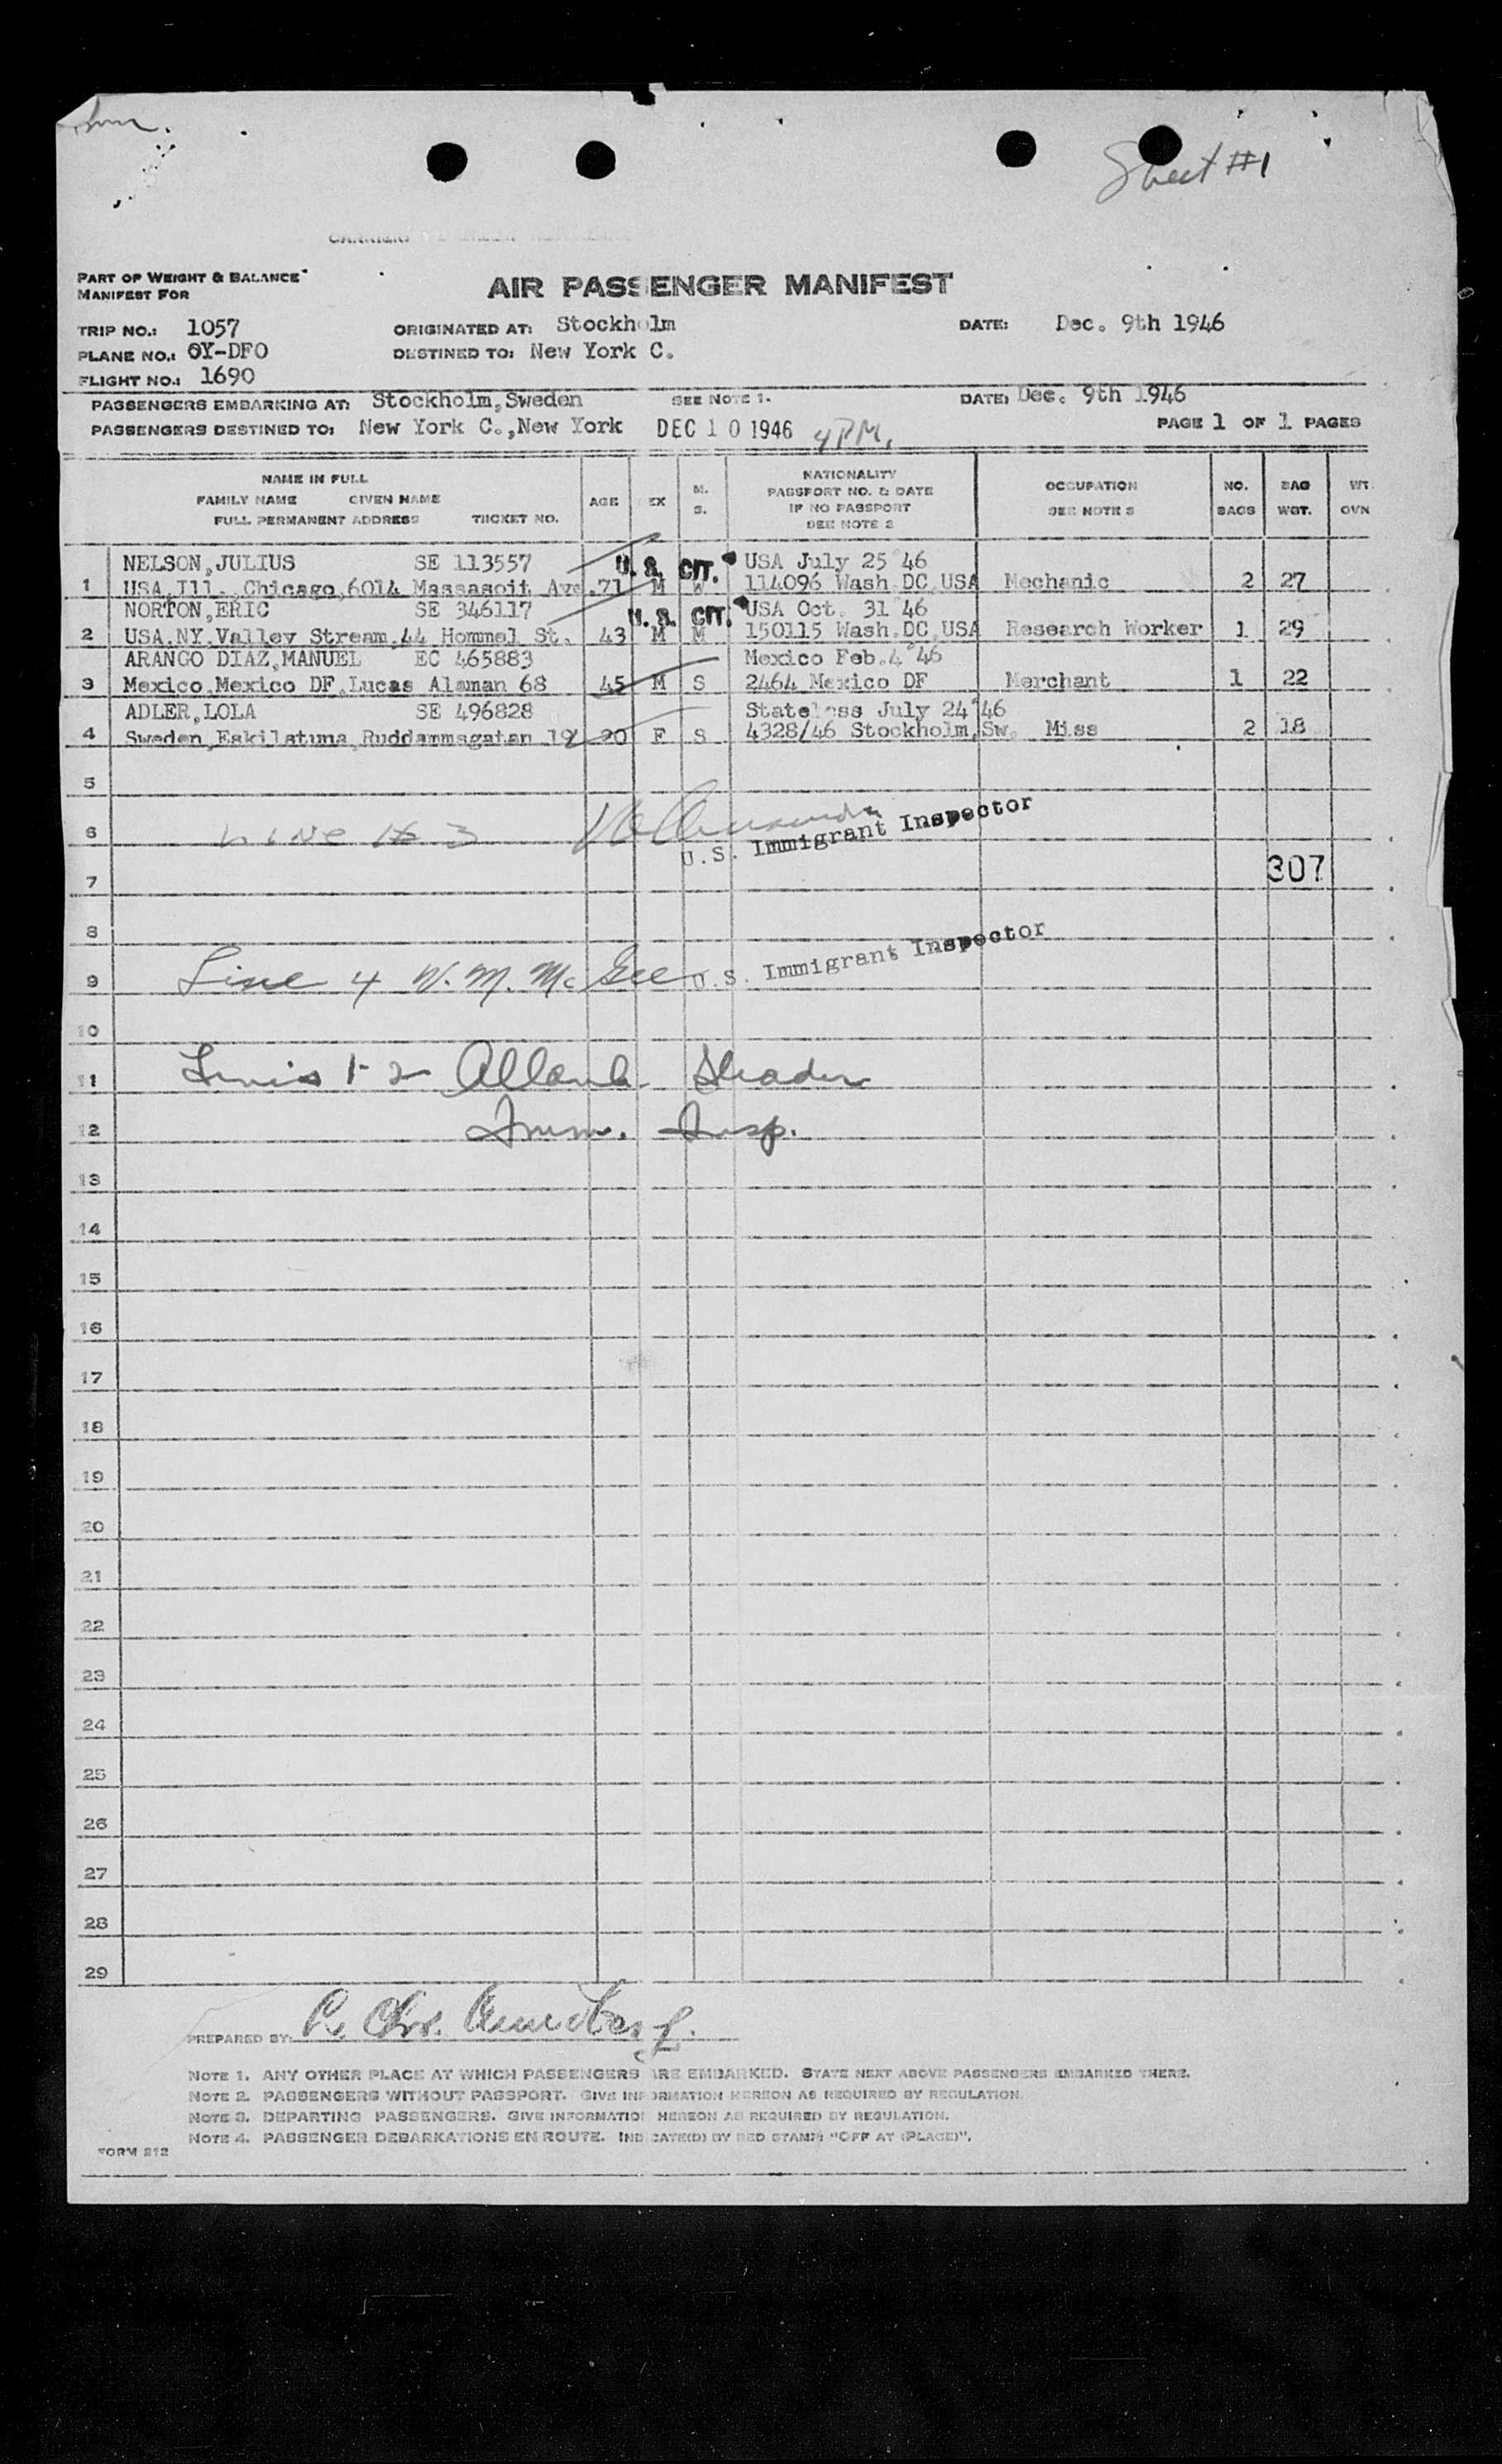 Sheet #1
PART OF WEIGHT & BALANCE
MANIFEST FOR
AIR PASSENGER MANIFEST
TRIP NO.: 1057 ORIGINATED AT: Stockholm DATE: Dec. 9th 1946
PLANE NO.: OY-DFO DESTINED TO: New York C.
FLIGHT NO.: 1690
PASSENGERS EMBARKING AT: Stockholm,Sweden SEE NOTE 1. DATE: Dec. 9th 1946
PASSENGERS DESTINED TO: New York C.,New York DEC 10 1946 4PM. PAGE 1 OF 1 PAGES
NAME IN FULL
FAMILY NAME GIVEN NAME
FULL PERMANENT ADDRESS TICKET NO.
AGE
EX
M.
S.
NATIONALITY
PASSPORT NO. & DATE
IF NO PASSPORT
SEE NOTE 2
OCCUPATION
SEE NOTE 3
NO.
BAGS
BAG
WGT.
WT.
OVN
NELSON,JULIUS SE 113557 U.S. CIT. USA July 25 46
1 USA,Ill.,Chicago,6014 Massasoit Ave. 71 M W 114096 Wash.DC,USA Mechanic 2 27
NORTON,ERIC SE 346117 U.S. CIT. USA Oct. 31 46
2 USA,NY,Valley Stream,44 Hommel St. 43 M M 150115 Wash.DC,USA Research Worker 1 29
ARANGO DIAZ,MANUEL EC 465883 Mexico Feb.4 46
3 Mexico,Mexico DF,Lucas Alaman 68 45 M S 2464 Mexico DF Merchant 1 22
ADLER,LOLA SE 496828 Stateless July 24 46
4 Sweden,Eskilstuna,Ruddammsgatan 19 20 F S 4328/46 Stockholm,Sw. Miss 2 18
5
6 Line 3
U.S. Immigrant Inspector
307
7
8
9 Line 4 W. M. McGee U.S. Immigrant Inspector
10
11 Lines 1-2
12 Imm. Insp.
13
14
15
16
17
18
19
20
21
22
23
24
25
26
27
28
29
PREPARED BY:
NOTE 1. ANY OTHER PLACE AT WHICH PASSENGERS ARE EMBARKED. STATE NEXT ABOVE PASSENGERS EMBARKED THERE.
NOTE 2. PASSENGERS WITHOUT PASSPORT. GIVE INFORMATION HEREON AS REQUIRED BY REGULATION.
NOTE 3. DEPARTING PASSENGERS. GIVE INFORMATION HEREON AS REQUIRED BY REGULATION.
NOTE 4. PASSENGER DEBARKATIONS EN ROUTE. INDICATE(D) BY RED STAMP: "OFF AT (PLACE)".
FORM 212